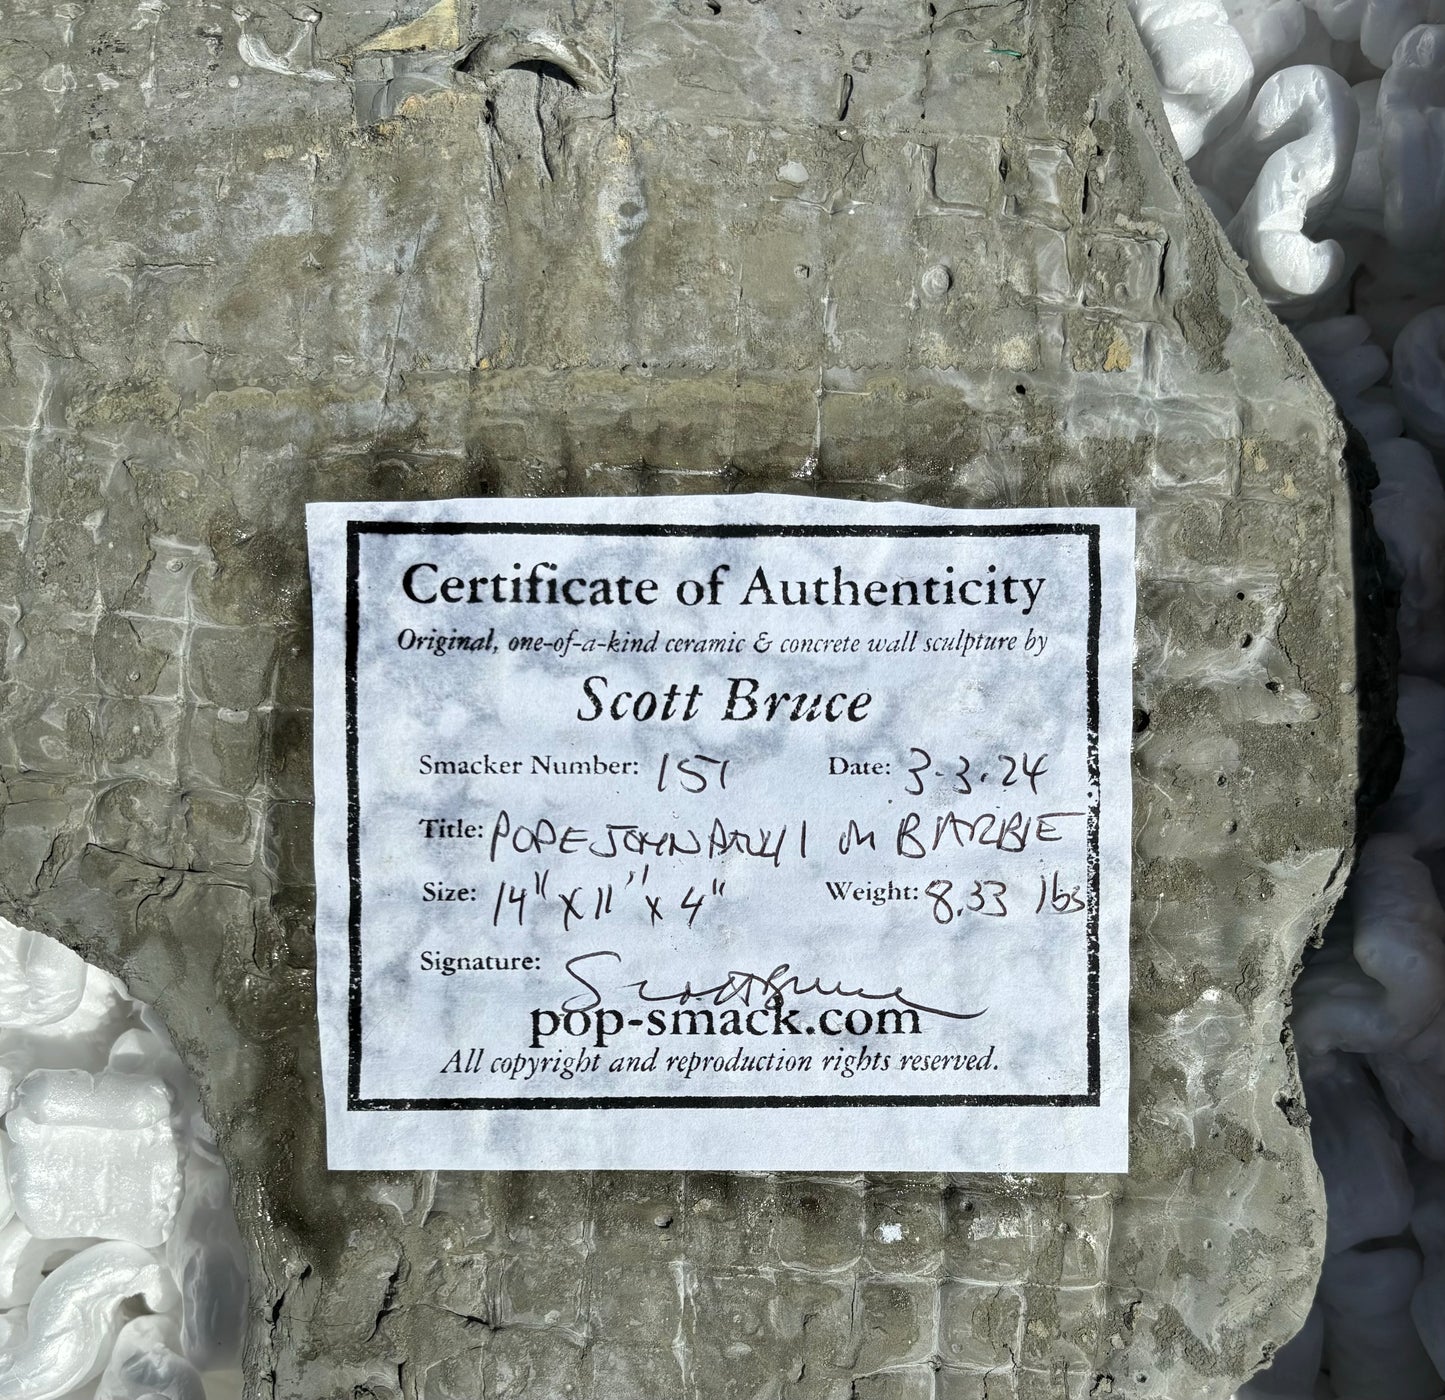 Certificate of Authenticity
Original, one-of-a-kind ceramic & concrete wall sculpture by
Scott Bruce
Smacker Number: 151 Date: 3.3.24
Title: POPE JOHN PAUL I M BARBIE
Size: 14" x 11" x 4" Weight: 8.33 lbs
Signature: Scott Bruce
pop-smack.com
All copyright and reproduction rights reserved.